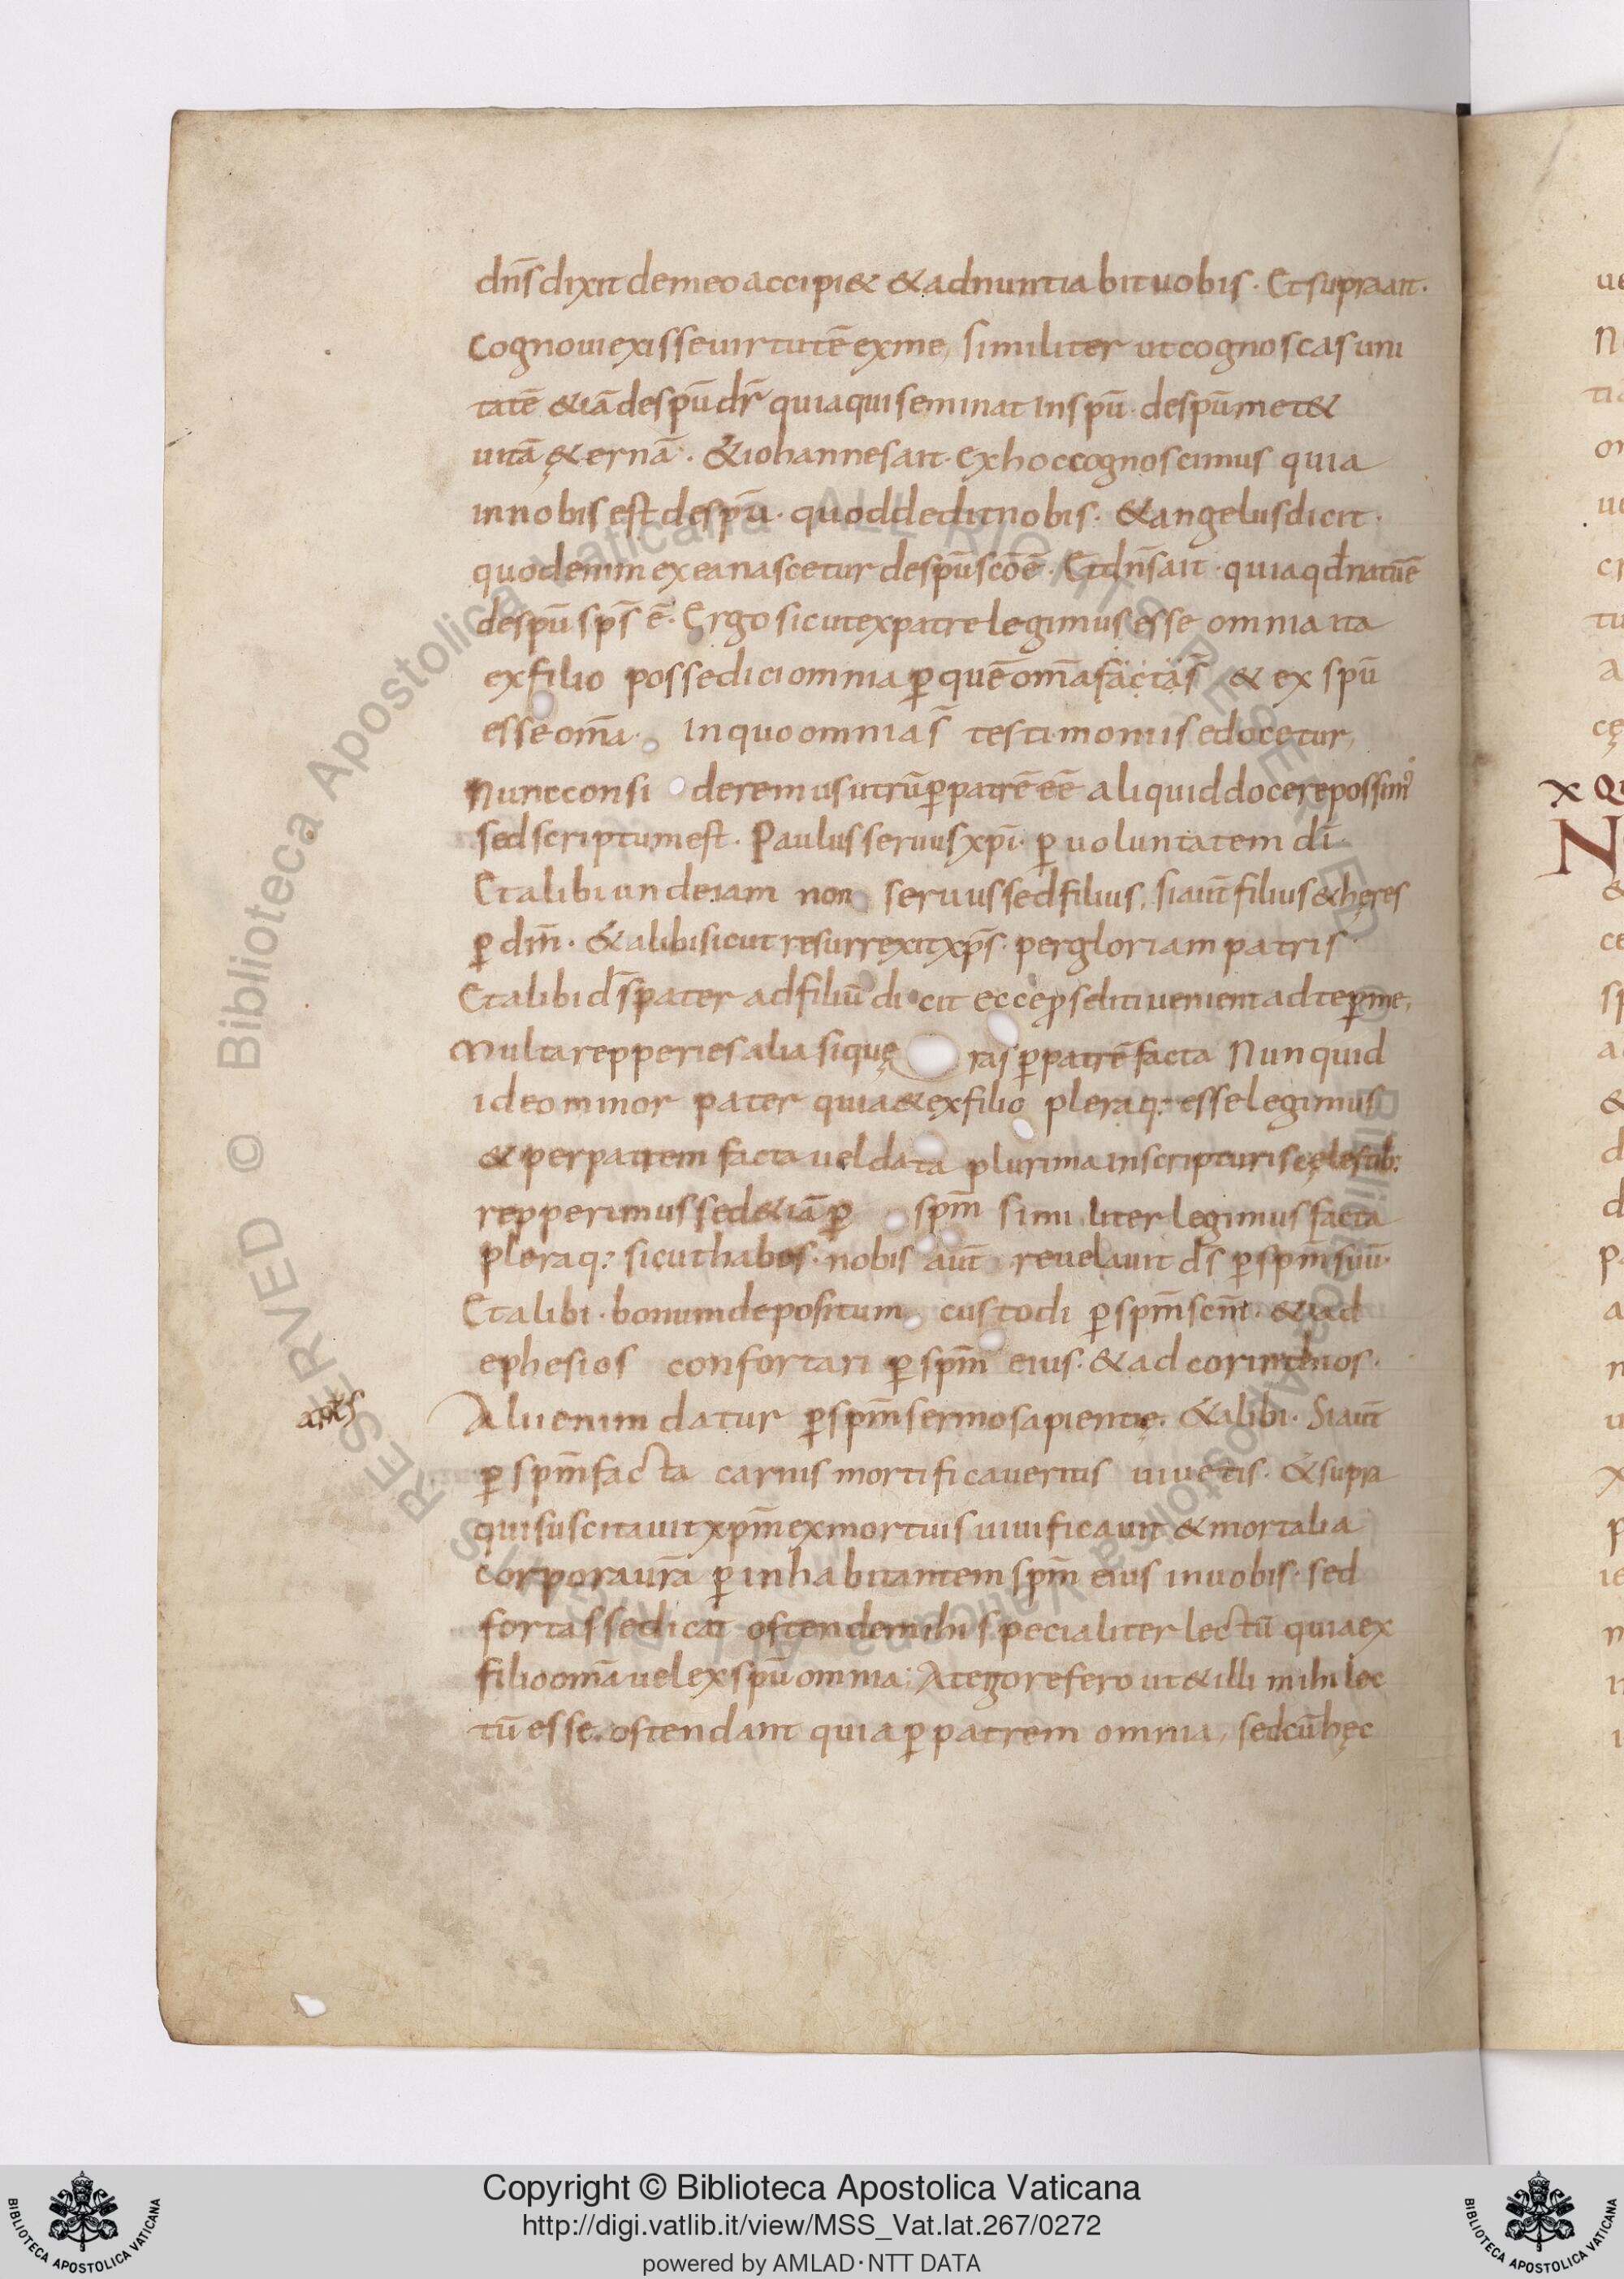 dn̄s dixit de meo accipi& & adnuntiabit uobis · Et supra ait ·
Cognoui exisse uirtutē ex me, similiter ut cognoscas uni
tatē &iā de spū dr̄ quia qui seminat in spū · de spū met&
uitā ę&ernā · & iohannes ait · ex hoc cognoscimus quia
in nobis est de spū · quod dedit nobis · & angelus dicit ·
quod enim ex ea nascetur de spū scō ē · Et dn̄s ait · quia qđ natū ē
de spū sps̄ ē · Ergo sicut ex patre legimus esse omnia ita
ex filio posse dici omnia ꝑ quē omīa facta s̄ & ex spū
esse omīa · In quo omnia s̄ testimoniis edocetur,
Nunc consi deremus utrū ꝑ patrē eē aliquid docere possim᾽
sed scriptum est · Paulus seruus xp̄i · ꝑ uoluntatem dī ·
Et alibi unde iam non seruus sed filius, si aut̄ filius & hęres
ꝑ dm̄ · & alibi sicut resurrexit xp̄s · per gloriam patris ·
Et alibi d̄s pater ad filiū dicit ecce ꝓseliti uenient ad te ꝑ me,
Multa repperies alia si quę ras ꝑ patrē facta Nunquid
ideo minor pater quia & ex filio pleraq: esse legimus
& per patrem facta uel data plurima in scripturis cęlestib:
repperimus sed &iā ꝑ spm̄ similiter legimus facta
pleraq: sicut habes · nobis aut̄ reuelauit d̄s ꝑ spm̄ suū ·
Et alibi · bonum depositum custodi ꝑ spm̄ scm̄ · & ad
ephesios confortari ꝑ spm̄ eius · & ad corinthios ·
Alii enim datur ꝑ spm̄ sermo sapientię · & alibi · Si aut̄
ꝑ spm̄ facta carnis mortificaueritis uiuetis · & supra
qui suscitauit xpm̄ ex mortuis uiuificauit & mortalia
corpora ur̄a ꝑ inhabitantem spm̄ eius in uobis · sed
fortasse dicat ostende mihi specialiter lectū quia ex
filio omīa uel ex spū omnia; At ego refero ut & illi mihi lec
tū esse ostendant quia ꝑ patrem omnia, sed cū hęc
Copyright © Biblioteca Apostolica Vaticana
http://digi.vatlib.it/view/MSS_Vat.lat.267/0272
powered by AMLAD·NTT DATA
BIBLIOTECA APOSTOLICA VATICANA
BIBLIOTECA APOSTOLICA VATICANA